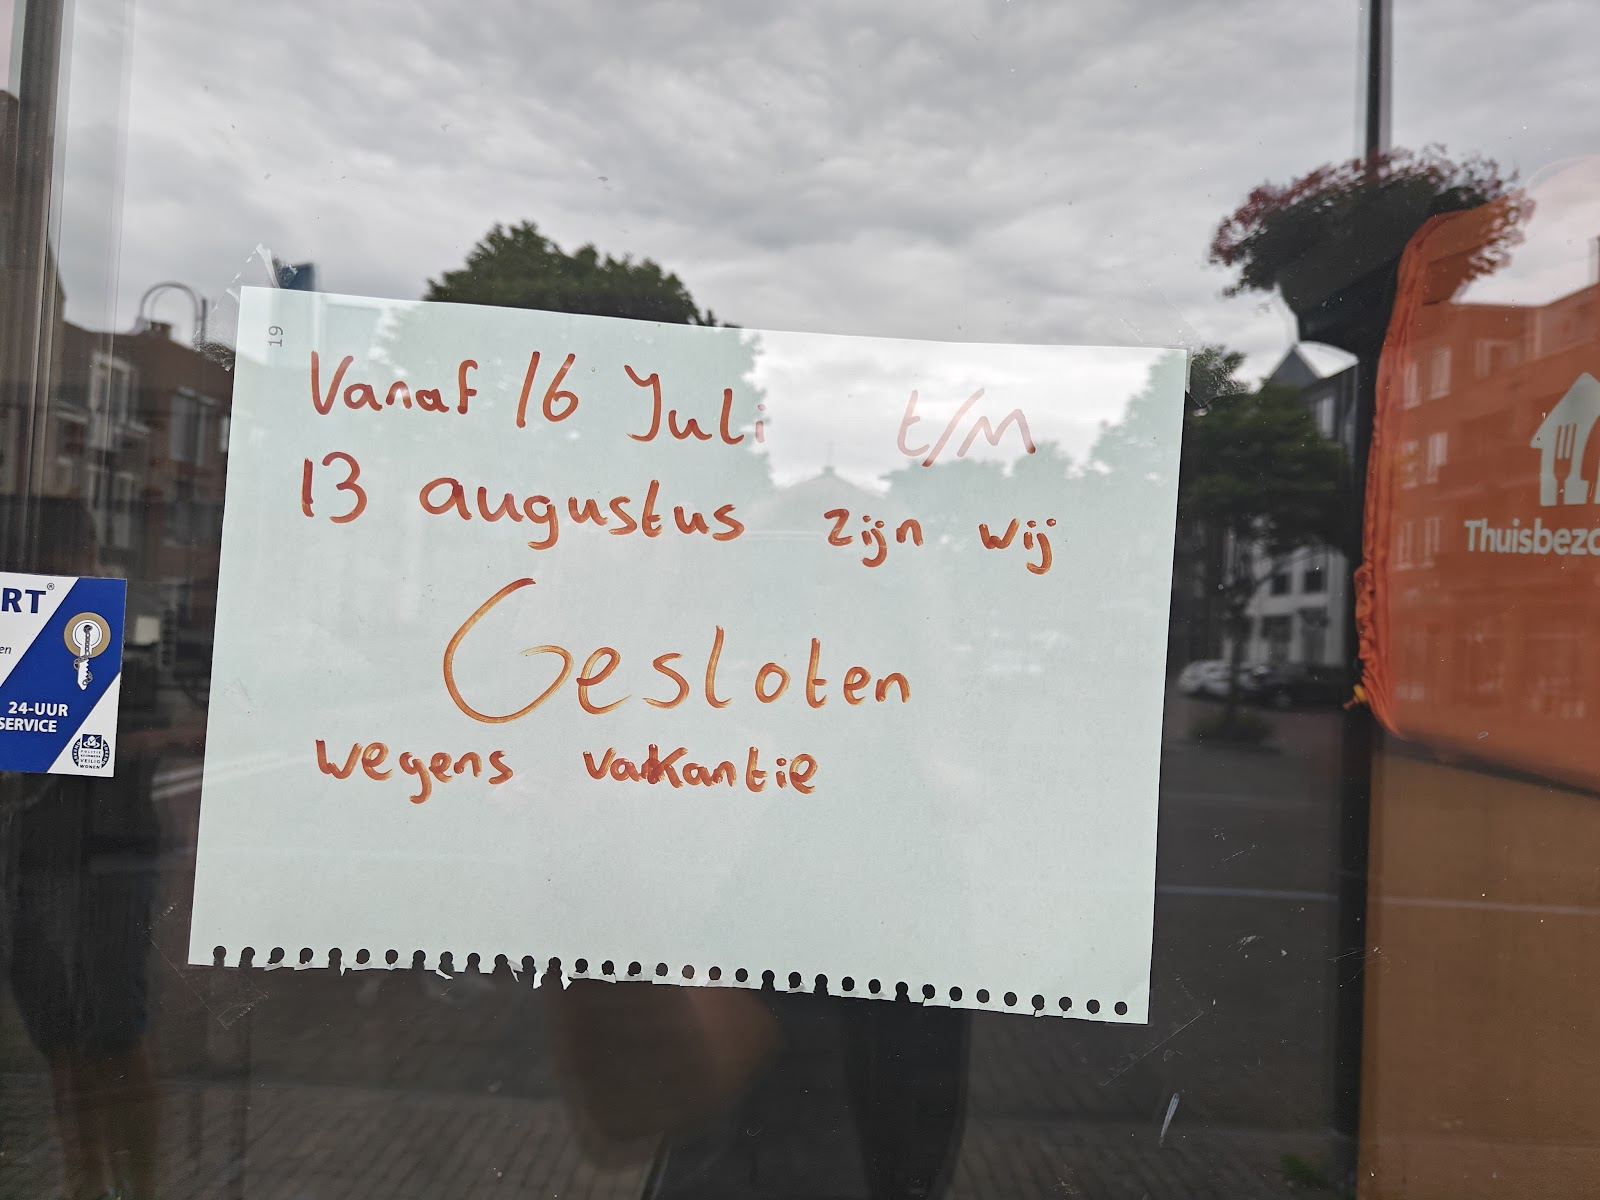 19
Vanaf 16 Juli t/m
13 augustus zijn wij
Gesloten
wegens vakantie
RT®
en
24-UUR
SERVICE
POLITIE
KEURMERK
VEILIG
WONEN
Thuisbezo